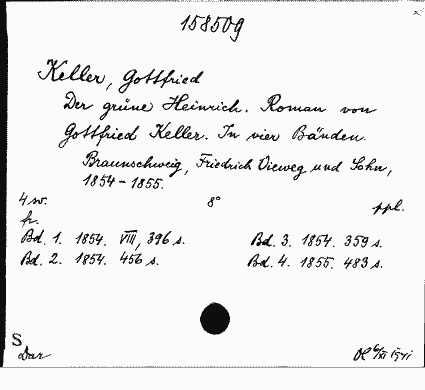 158509
Keller, Gottfried
Der grüne Heinrich. Roman von
Gottfried Keller. In vier Bänden.
Braunschweig, Friedrich Vieweg und Sohn,
1854-1855.
4 sv. 8° ppl.
fr.
Bd. 1. 1854. VIII, 396 s. Bd. 3. 1854. 359 s.
Bd. 2. 1854. 456 s. Bd. 4. 1855. 483 s.
S
Dar